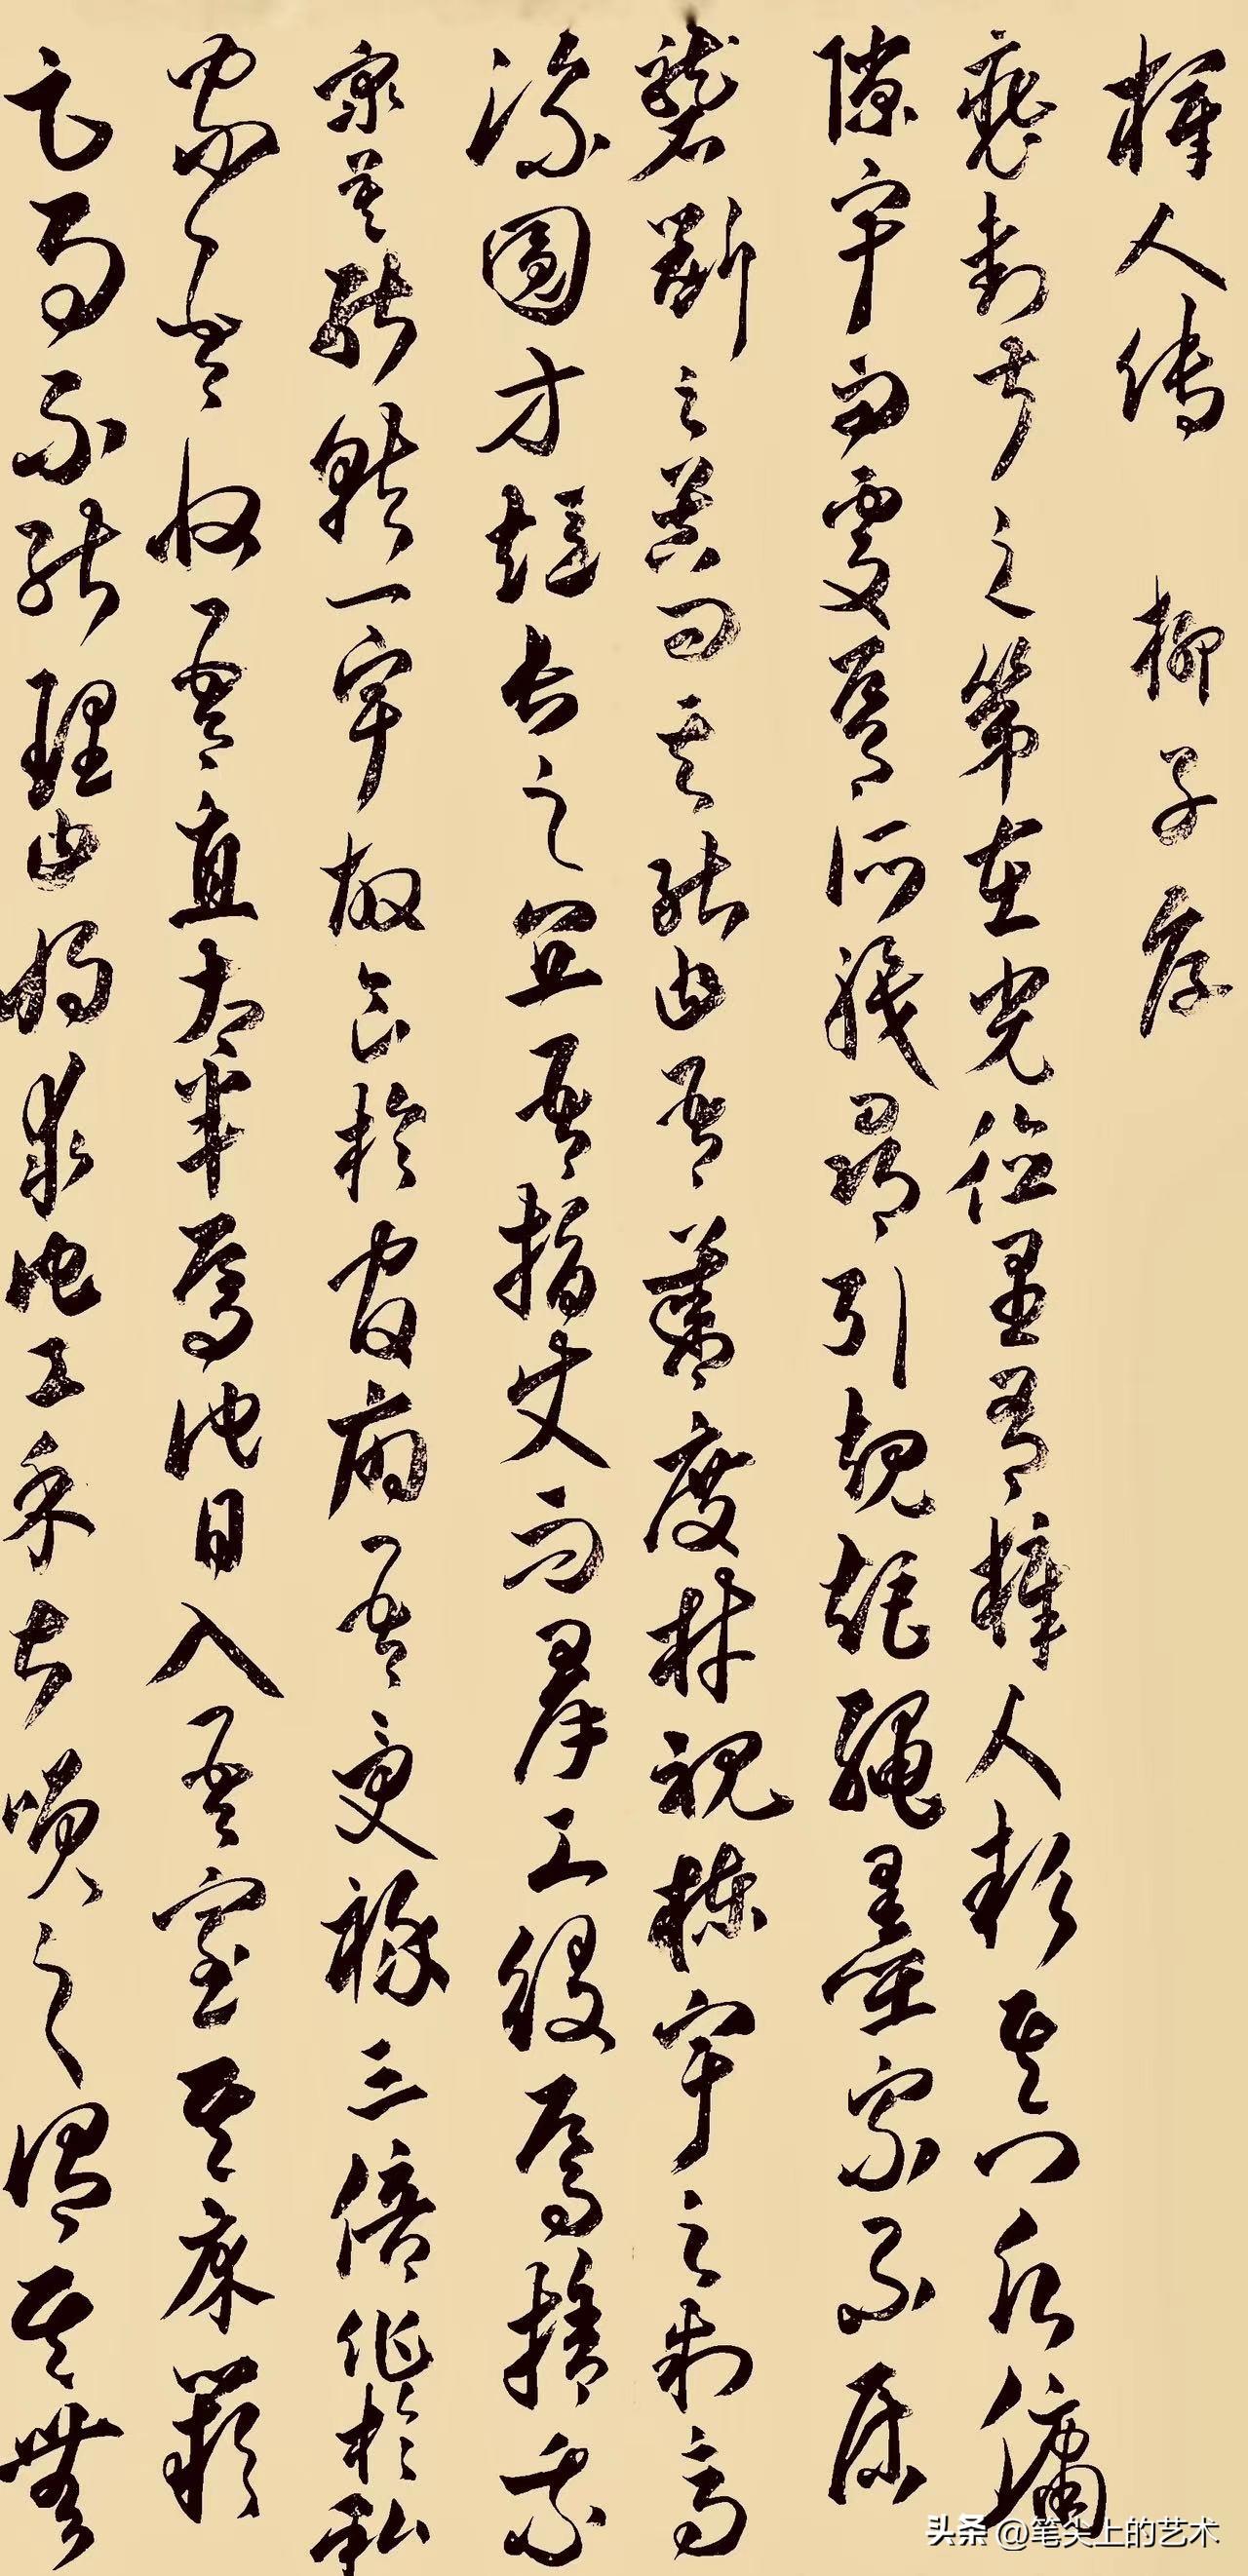 梓人傳 柳子厚
裴封叔之第在光德里有梓人款其門願傭
隙宇而處焉所職尋引規矩繩墨家不居
礱斲之器問其能曰吾善度材視棟宇之制高
深圓方短長之宜吾指使而群工役焉捨我
衆莫能就一宇故食於官府吾受祿三倍作於私
家吾收其直太半焉他日入其室其床闕
足而不能理曰將求他工余甚笑之謂其無
头条 @笔尖上的艺术